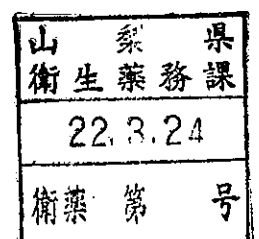 山梨県
衛生薬務課
22.3.24
衛薬 第 号